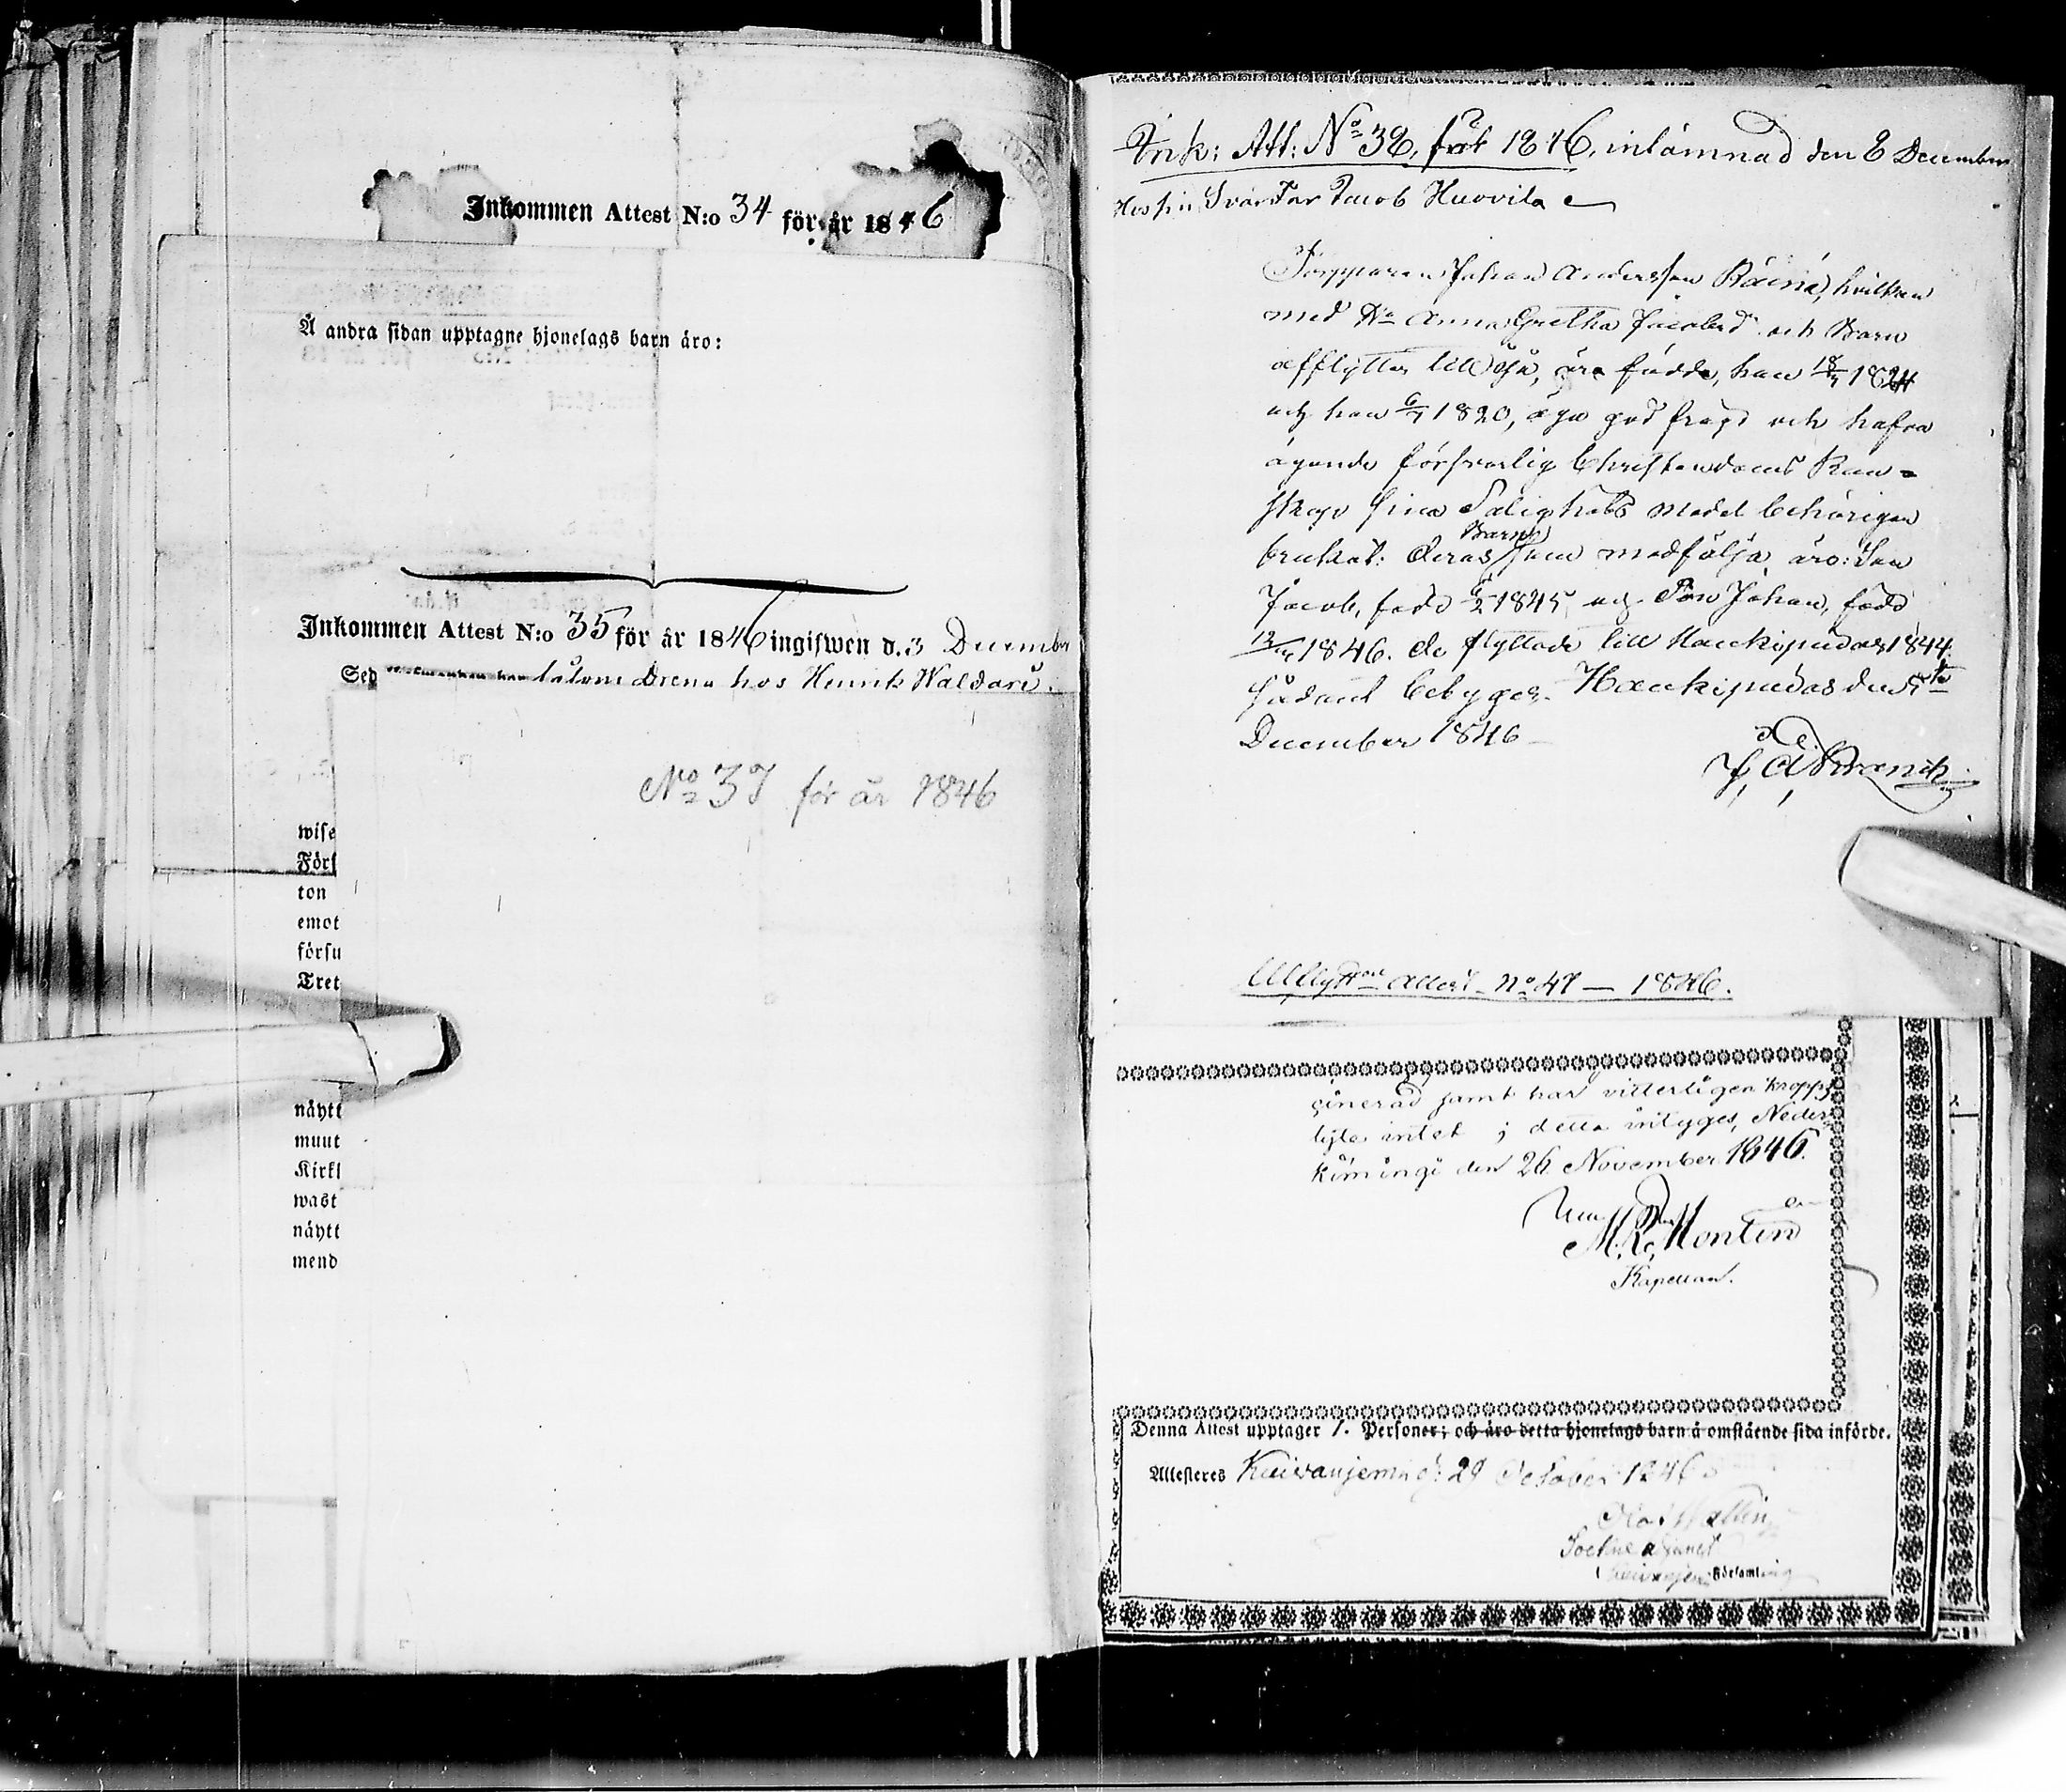 Inkommen Attest N:o 34 för år 1846
Å andra sidan upptagne hjonelags barn äro:
Inkommen Attest N:o 35 för år 1846 ingifwen d. 3 December
Sed hos Henrik Waldari.
No 37 för år 1846
wise
Förs
ton
emot
försu
Tret
näytt
muut
Kirkl
wast
näytt
mend
Ink: Att: No 38, för 1846, inlämnad den 8 December
Hos sin Svär Far Jacob Huovila
Torpparen Johan Andersson Räinä, hvilken
med Hu Anna Gretha Jacobsd och Barn
afflyttar till Ijo, äro födde, han 18/7 1824
och hon 6/7 1820, äga god fräjd och hafva
ägande försvarlig Christendoms Kun-
skap sina Salighets medel behörigen
brukat. Deras Barn som medfölja, äro: Son
Jacob, född 6/2 1845 och Son Johan, född
1846. De flyttade till Haukipudas 1844.
Sådant betygar. Haukipudas den 5te
December 1846
Utflyttn Attest No 47 — 1846.
cinerad samt har vitterligen kropps
lyte intet; detta intyges, Neder
Kiminge den 26 November 1846.
M. R. Montin
Kapellan.
Denna Attest upptager 1. Personer; och äro detta hjonelags barn å omstående sida införde.
Attesteres Kuivaniemi d: 29 October 1846
Olof Wallin
Sockne adjunct
Kuivaniemi Församling